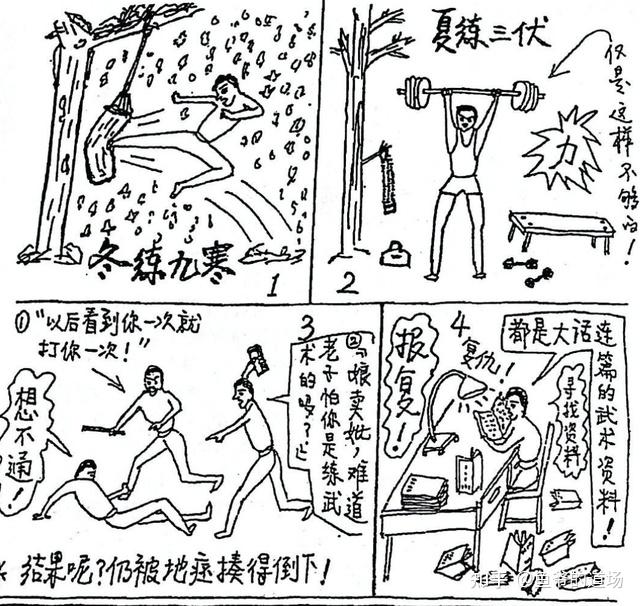 冬练九寒
1
夏练三伏
仅是这样不够的！
力
2
3
①“以后看到你一次就
打你一次！”
②“娘卖妣，难道
老子怕你是练武
术的吗？”
想不通！
结果呢？仍被地痞揍得倒下！
4
报复！
复仇！
都是大话连
篇的武术资料！
寻找资料
知乎 @鱼爷的道场